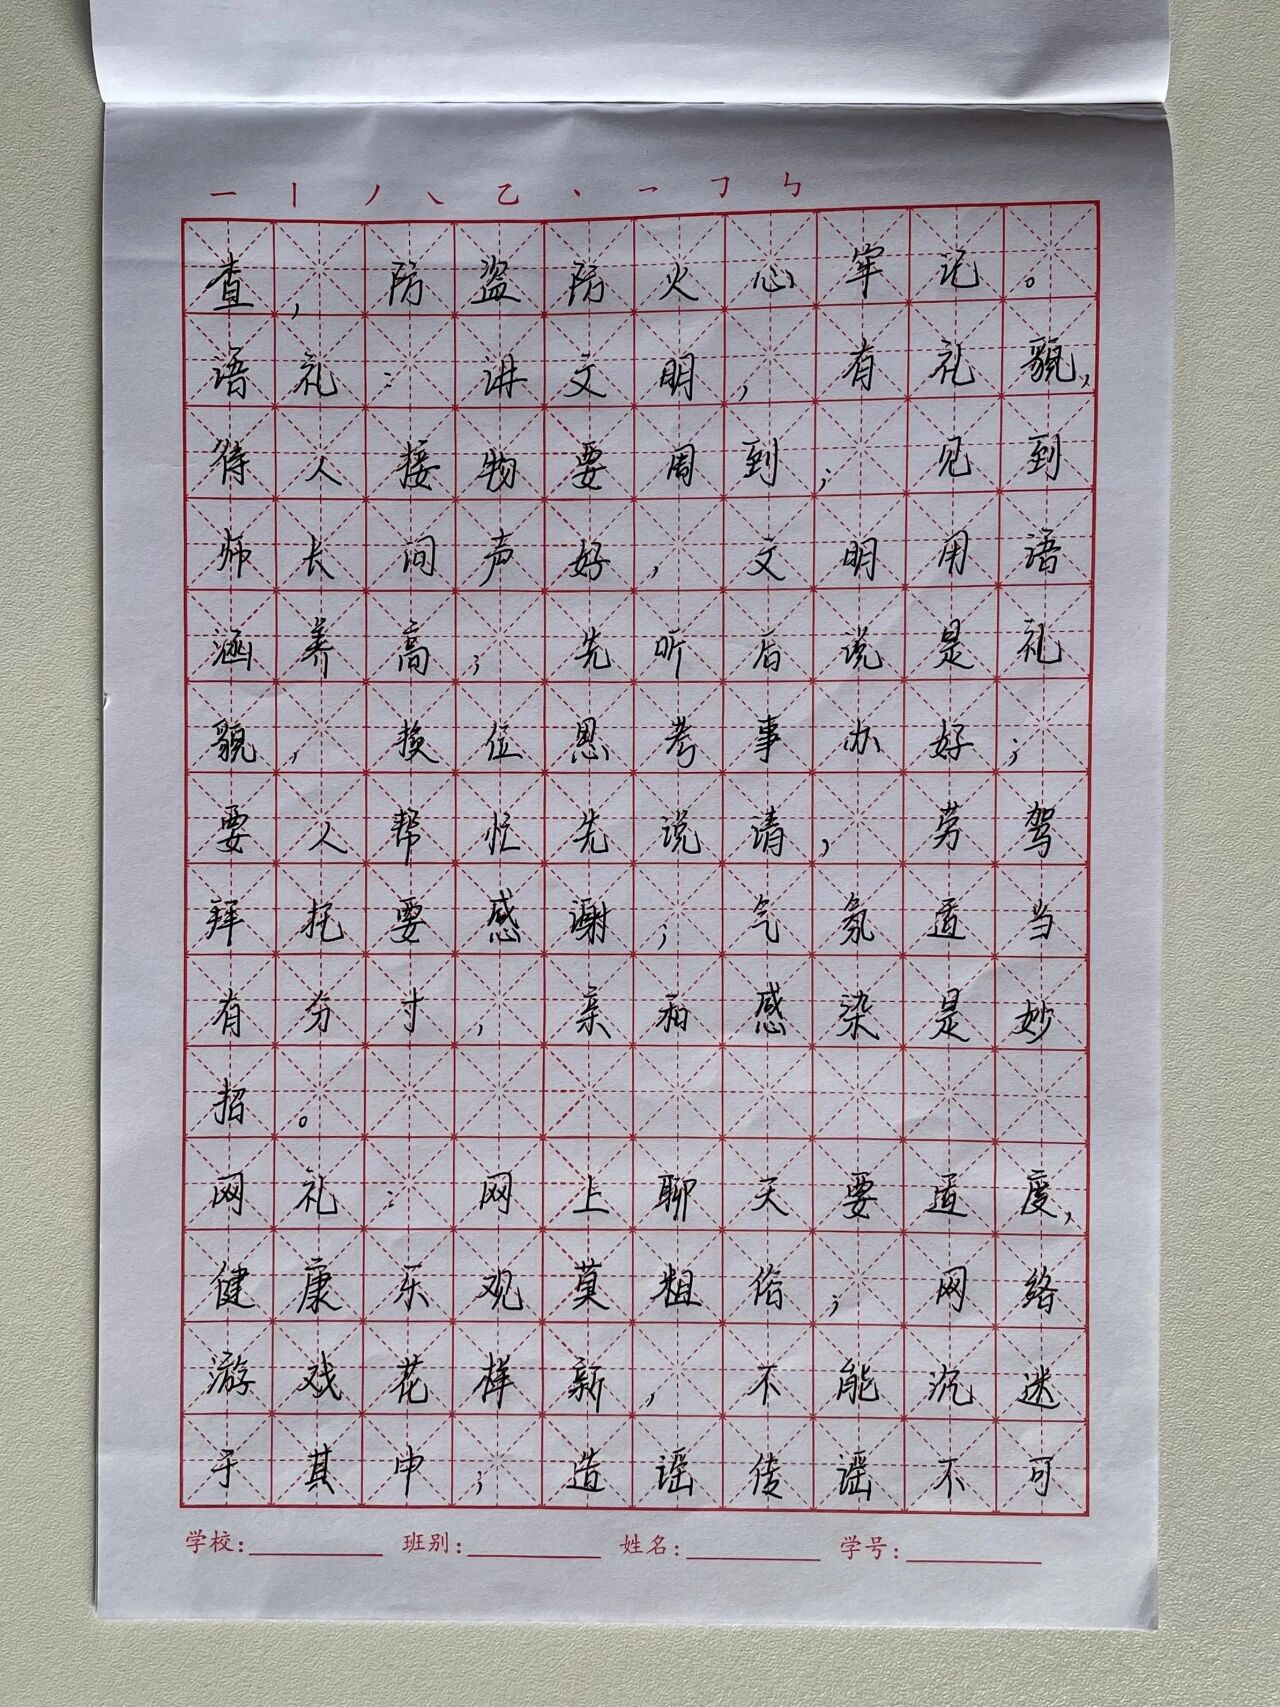 一丨丿㇏乙丶㇖𠃌ㄣ
查，防盗防火心牢记。
语礼：讲文明，有礼貌，
待人接物要周到；见到
师长问声好，文明用语
涵养高；先听后说是礼
貌，换位思考事办好；
要人帮忙先说请，劳驾
拜托要感谢；气氛适当
有分寸，亲和感染是妙
招。
网礼：网上聊天要适度，
健康乐观莫粗俗；网络
游戏花样新，不能沉迷
于其中；造谣传谣不可
学校：班别：姓名：学号：